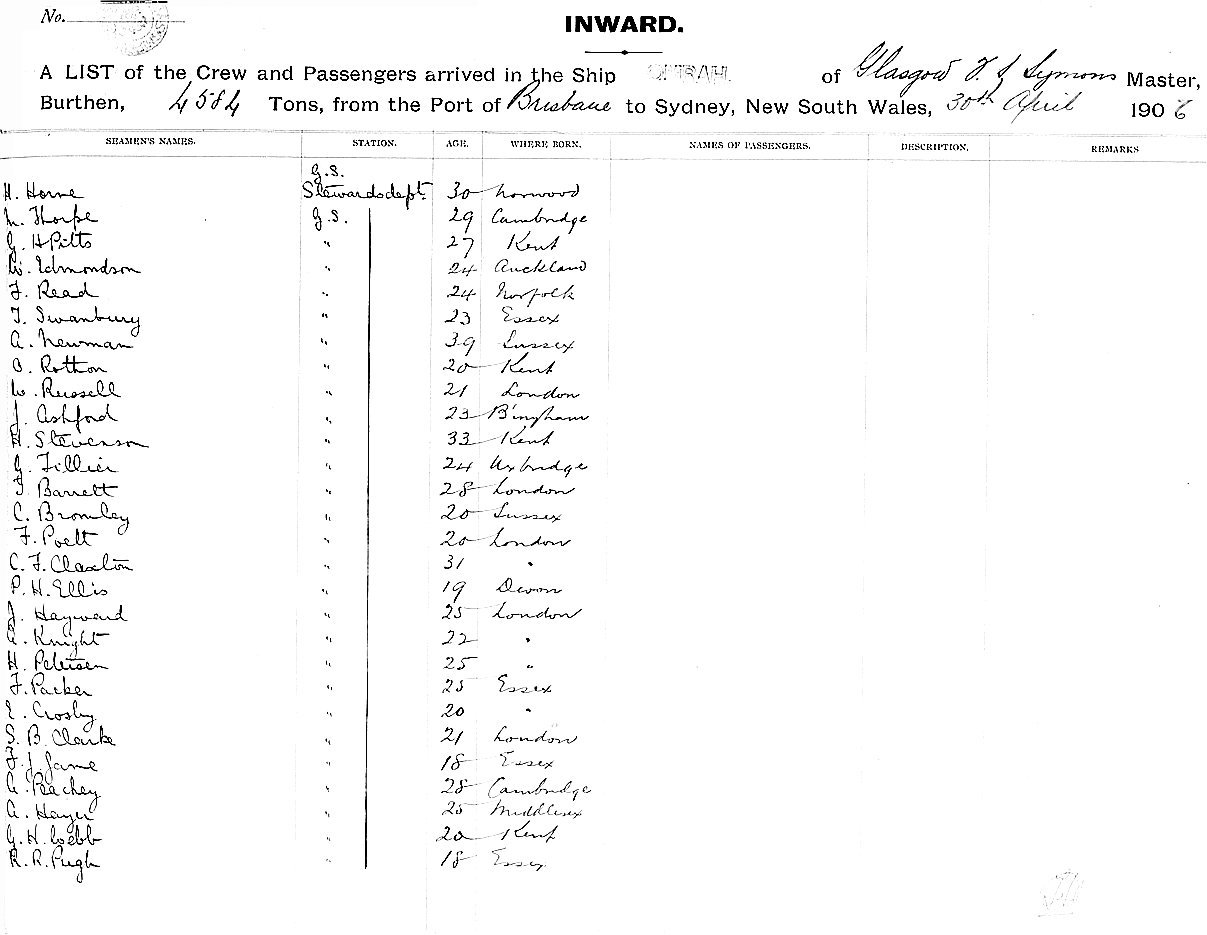 No.
INWARD.
A LIST of the Crew and Passengers arrived in the Ship OPHIR of Glasgow F. S Symons Master,
Burthen, 4584 Tons, from the Port of Brisbane to Sydney, New South Wales, 30th April 1906
SEAMEN'S NAMES. STATION. AGE. WHERE BORN. NAMES OF PASSENGERS. DESCRIPTION. REMARKS
G.S.
H. Horne Stewards dept. 30 Norwood
Thorpe G.S. 29 Cambridge
G. H Pitts " 27 Kent
W. Edmondson " 24 Auckland
F. Read " 24 Norfolk
T. Swanbury " 23 Essex
A. Newman " 39 Sussex
O. Rotton " 20 Kent
W. Russell " 21 London
J. Ashford " 23 B'ingham
H. Stevenson " 33 Kent
G. Tillier " 24 Uxbridge
T. Barrett " 28 London
C. Bromley " 20 Sussex
F. Poelt " 20 London
C. F. Claxton " 31 "
P. H. Ellis " 19 Devon
J. Hayward " 25 London
A. Knight " 22 "
H. Petersen " 25 "
F. Parker " 25 Essex
E. Crosby " 20 "
S. B. Clarke " 21 London
F. J. Jame " 18 Essex
A. Peachey " 28 Cambridge
A. Hayer " 25 Middlesex
G. H. Webb " 20 Kent
R. R. Pugh " 18 Essex